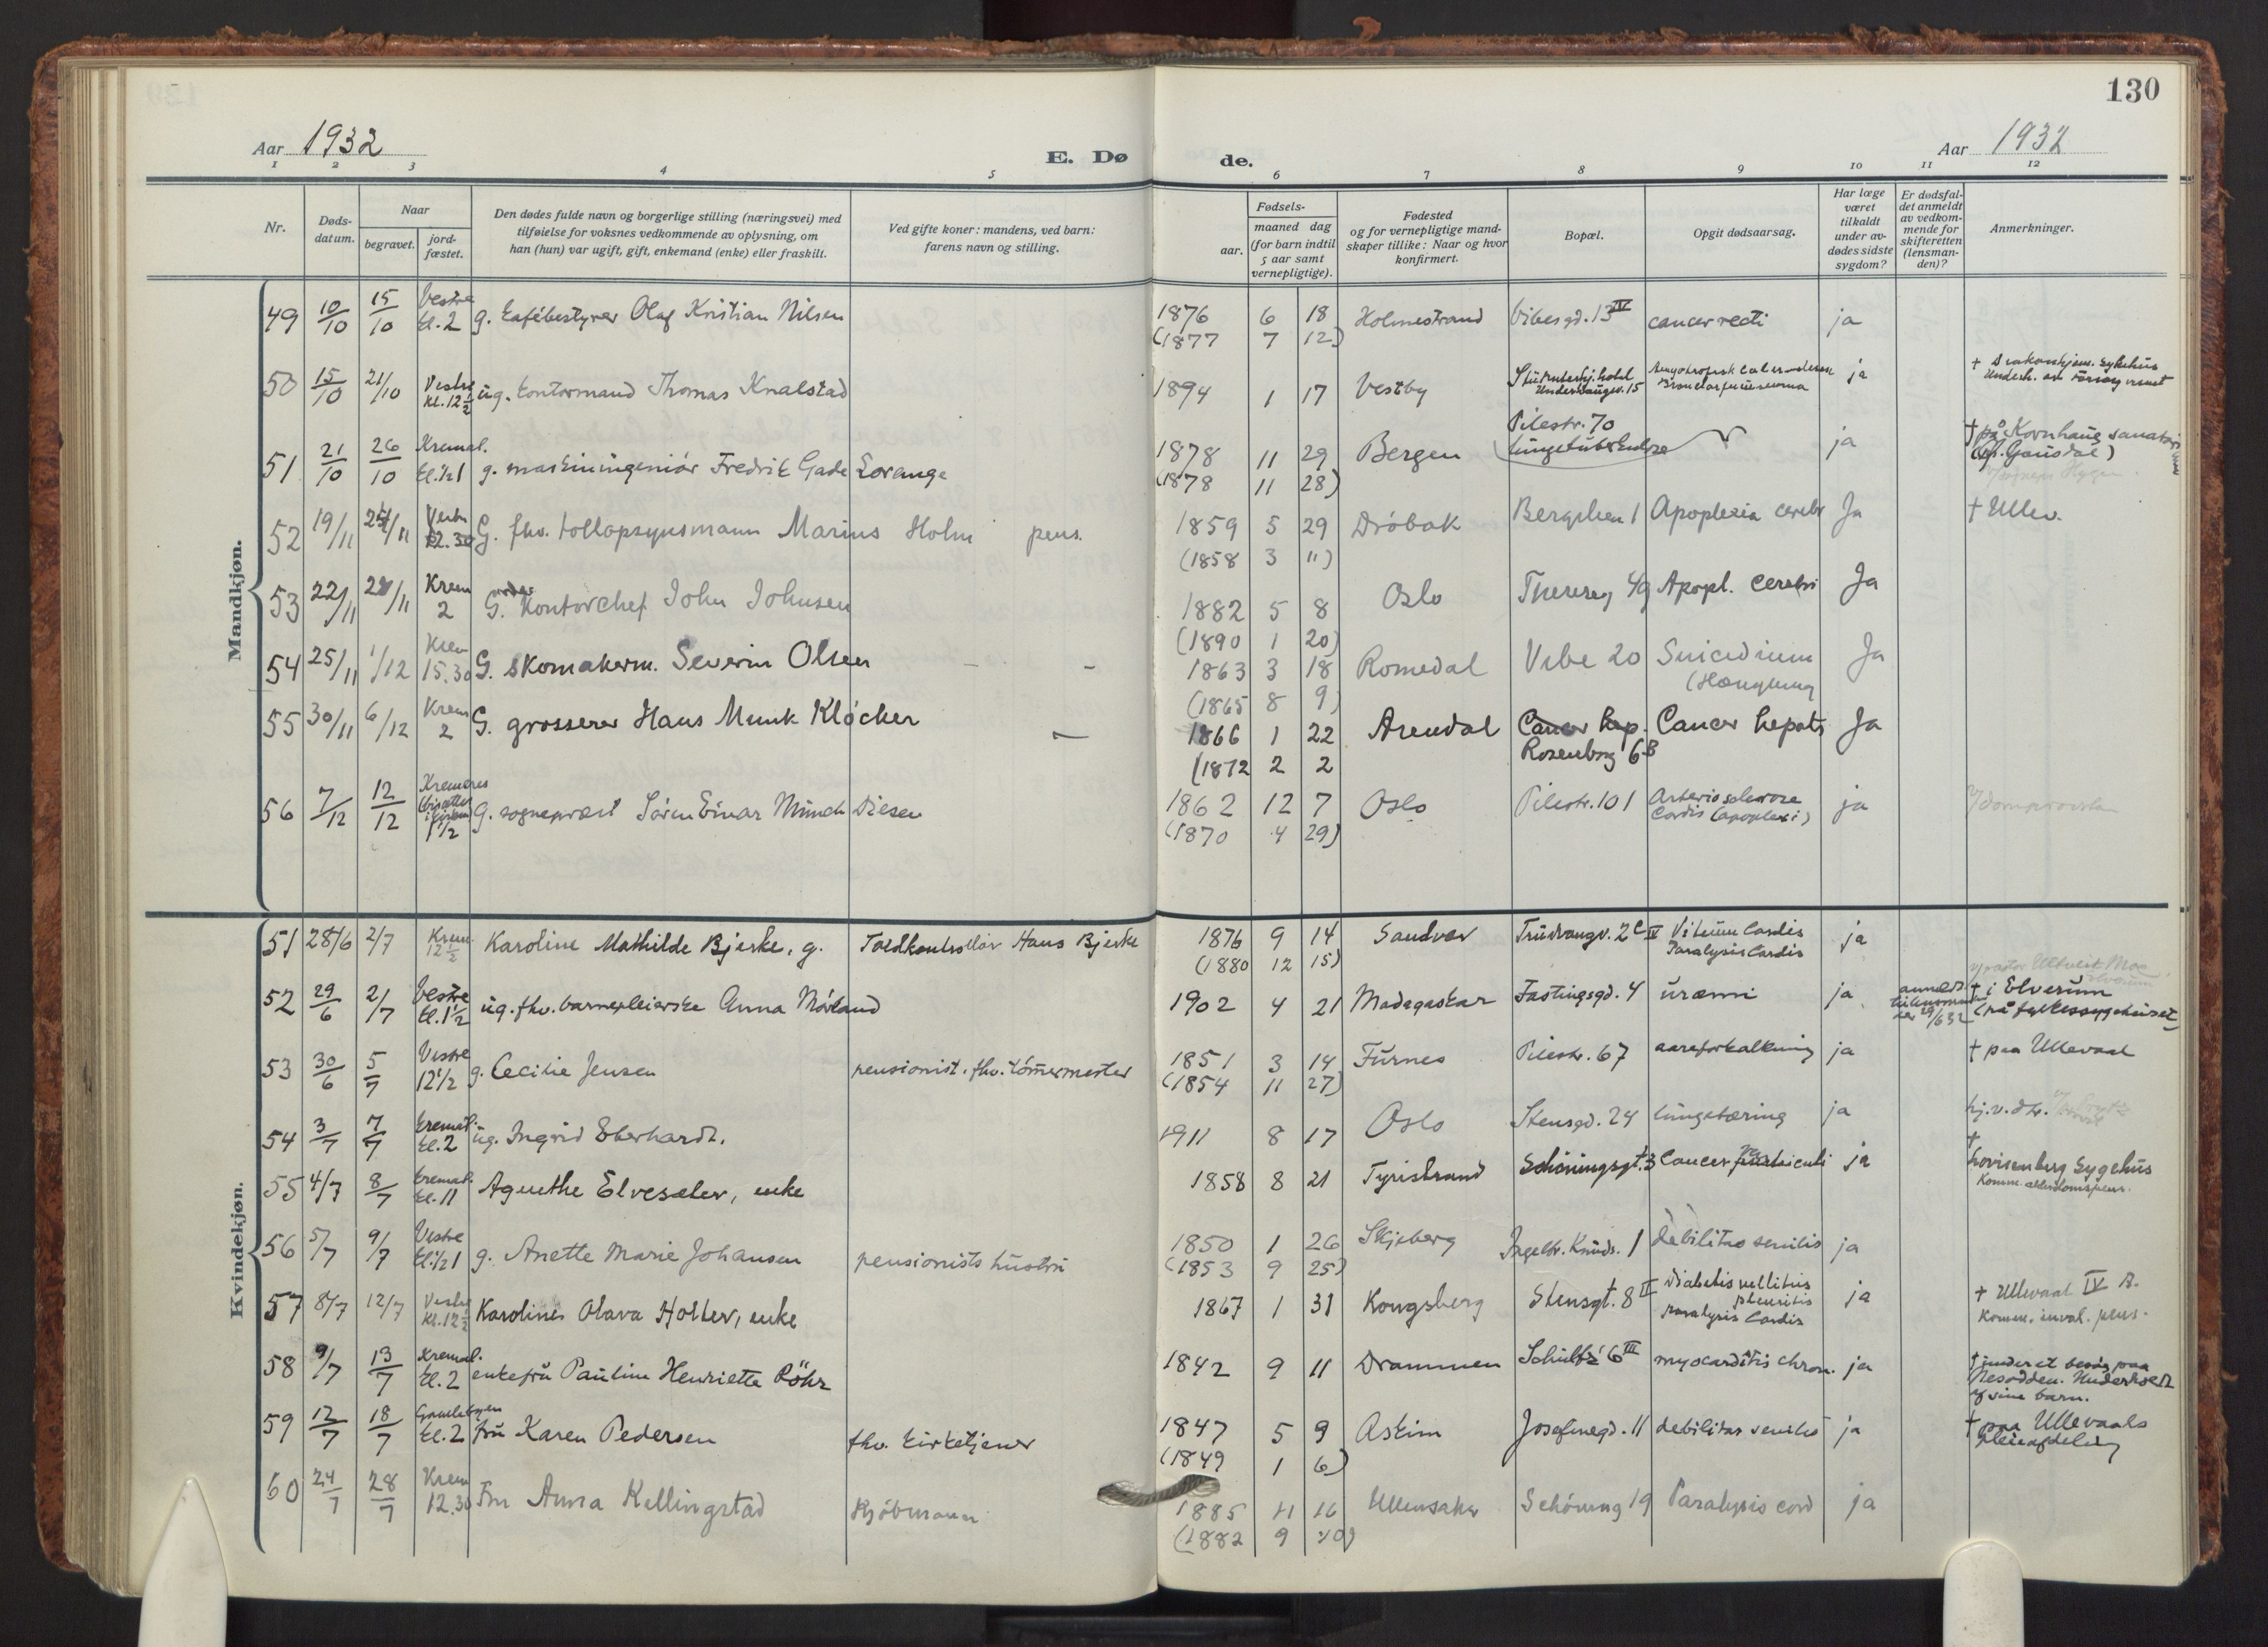 130
Aar 1932
E. Dø
de.
Aar 1932
1 2 3 4 5 6 7 8 9 10 11 12
Nr.
Døds-datum.
Naar
begravet.
jord-fæstet.
Den dødes fulde navn og borgerlige stilling (næringsvei) med
tilføielse for voksnes vedkommende av oplysning, om
han (hun) var ugift, gift, enkemand (enke) eller fraskilt.
Ved gifte koner: mandens, ved barn:
farens navn og stilling.
Fødsels-
aar.
maaned dag
(for barn indtil
5 aar samt
vernepligtige).
Fødested
og for vernepligtige mand-
skaper tillike: Naar og hvor
konfirmert.
Bopæl.
Opgit dødsaarsag.
Har læge
været
tilkaldt
under av-
dødes sidste
sygdom?
Er dødsfal-
det anmeldt
av vedkom-
mende for
skifteretten
(lensman-
den)?
Anmerkninger.
Mandkjøn.
49 10/10 15/10 Vestre kl. 2 g. kafébestyrer Olaf Kristian Nilsen 1876 6 18 Holmestrand Vibesgd. 13 IV cancer recti ja
(1877 7 12)
50 15/10 21/10 Vestre kl. 12 1/2 ug. kontormand Thomas Knalstad 1894 1 17 Vestby ja
51 21/10 26/10 Kremat. kl. 1/2 1 g. maskiningeniör Fredrik Gade Lorange 1878 11 29 Bergen Pilestr. 70 lungetuberkulose ja † på Kornhaug sanatorium
(1878 11 28) (Ø. Gausdal)
52 19/11 /11 12.30 G. fhv. tollopsynsmann Marius Holm pens. 1859 5 29 Dröbak Apoplexia cerebr Ja † Ullev.
(1858 3 11)
53 22/11 /11 Krem 2 G. Kontorchef John Johnsen 1882 5 8 Oslo Apopl. cerebri Ja
(1890 1 20)
54 25/11 1/12 Krem 15.30 G. skomakerm. Severin Olsen 1863 3 18 Romedal Vibe 20 Suicidium Ja
(1865 8 9)
55 30/11 6/12 Krem 2 G. grosserer Hans Munk Klöcker 1866 1 22 Arendal Cancer hep. Cancer hepatis Ja
(1872 2 2 Rosenborg 6B
56 7/12 12/12 1 1/2 g. sogneprest Sören Einar Munch Diesen 1862 12 7 Oslo Pilestr. 10 I Arteriosclerose ja
(1870 4 29) cordis (apoplexi)
Kvindekjøn.
51 28/6 2/7 Krem. 12 1/2 Karoline Mathilde Bjerke, g. Toldkontrollör Hans Bjerke 1876 9 14 Sandver Trudvangv. 2c IV Vitium Cordis ja
(1880 12 15) Paralysis Cordis
52 29/6 2/7 Vestre kl. 1 1/2 ug. fhv. barnepleierske Anna Mörland 1902 4 21 Madagaskar Fastingsgd. 4 uræmi ja † i Elverum
53 30/6 5/7 Vestre 12 1/2 g. Cecilie Jensen pensionist. fhv. tömmermester 1851 3 14 Furnes Pilestr. 67 aareforkalkning ja † paa Ullevaal
(1854 11 27)
54 3/7 7/7 kremat. kl. 2 ug. Ingrid Eberhardt. 1911 8 17 Oslo Stensgd. 24 lungetæring ja
55 4/7 8/7 kremat. kl. 11 Agnethe Elvesæter, enke 1858 8 21 Tyristrand Schöningsgt. 3 Cancer ja † Lovisenberg Sygehus
56 5/7 9/7 Vestre kl. 1/2 1 g. Anette Marie Johansen pensionists hustru 1850 1 26 Skjeberg Ingebr. Knuds. 1 debilitas senilis ja
(1853 9 25)
57 8/7 12/7 Vestre kl. 12 1/2 Karoline Olava Holter, enke 1867 1 31 Kongsberg Stensgt. 8 II Diabetis mellitus ja † Ullevaal IV A.
pleuritis paralysis Cordis Komm. inval. pens.
58 9/7 13/7 Kremat. kl. 2 enkefru Pauline Henriette Röhr 1842 9 11 Drammen Schultz' 6 III myocarditis chron. ja † under et besög paa
Nesodden.
af sine barn.
59 12/7 18/7 Gamlebyen kl. 2 fru Karen Pedersen fhv. kirketjener 1847 5 9 Askim Josefinegd. 11 debilitas senilis ja † paa Ullevaals pleieafdeling
(1849 1 6)
60 24/7 28/7 Krem 12.30 Fru Anna Kellingstad Kjöbmann 1885 11 16 Ullensaker Schöning 19 Paralysis cord ja
(1882 9 20)